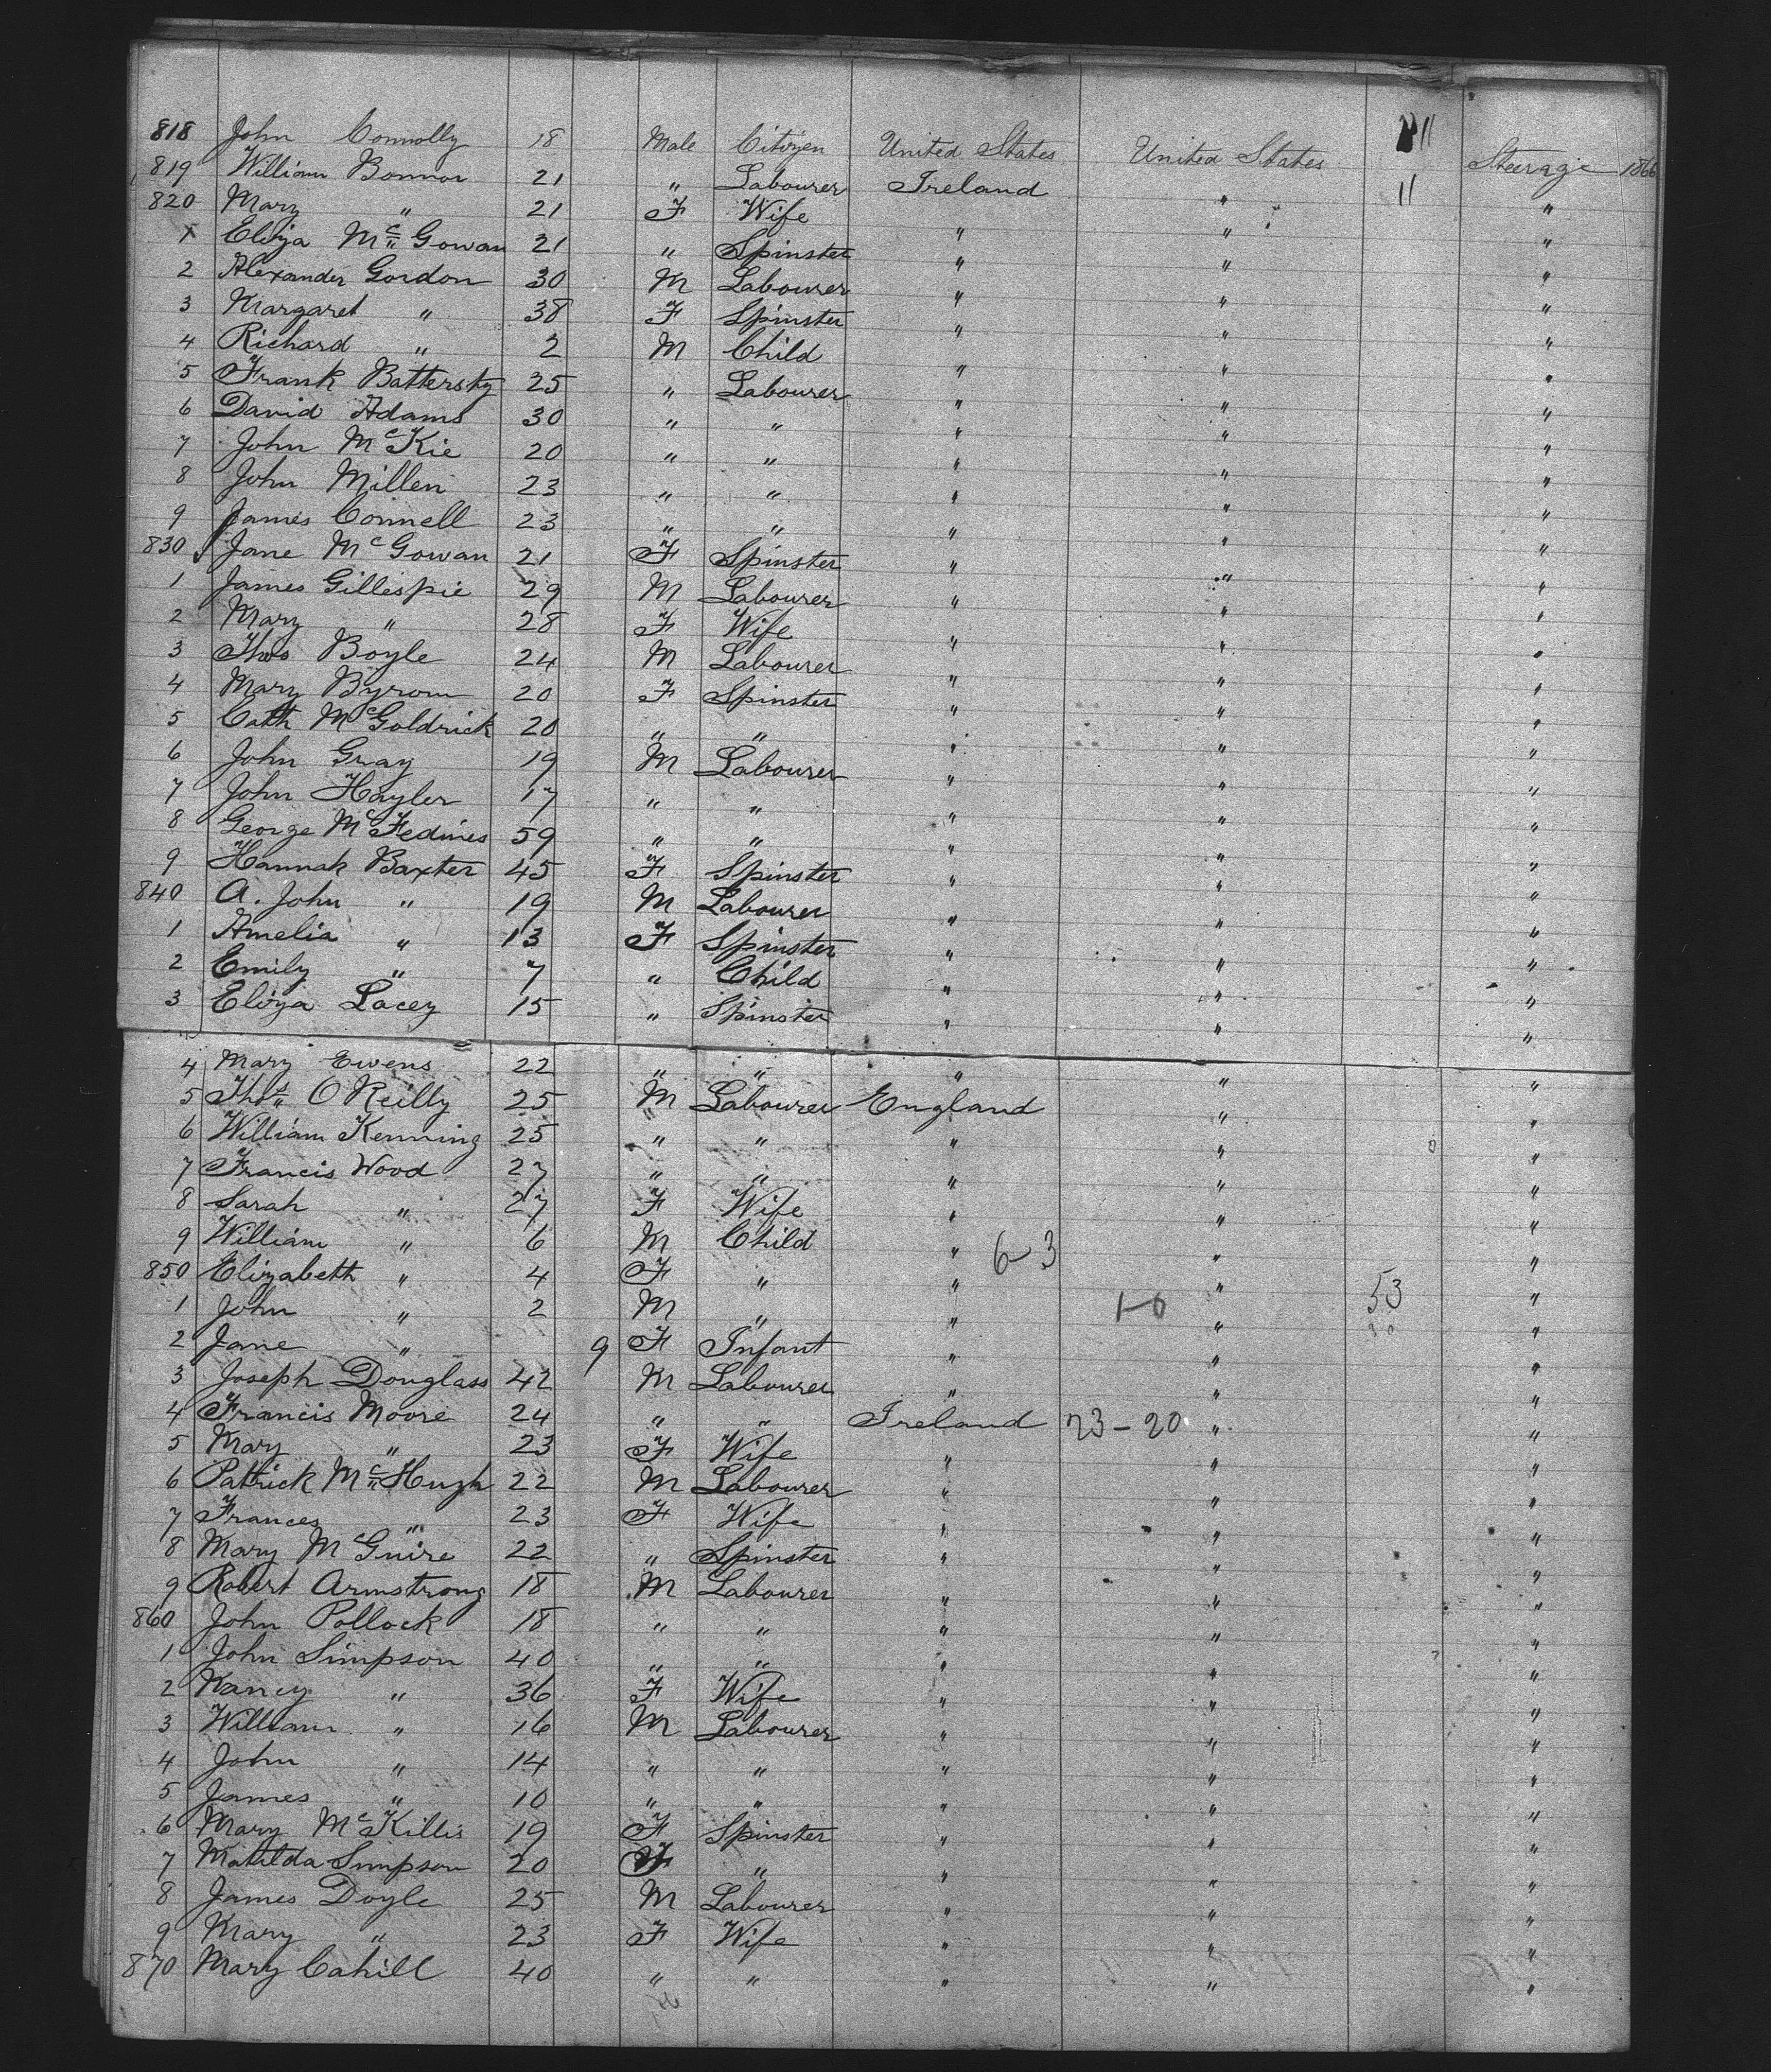 818 John Connolly 18 Male Citizen United States United States 11 Steerage 1866
819 William Bonnor 21 " Labourer Ireland " 11 "
820 Mary " 21 F Wife " " "
1 Eliza McGowan 21 " Spinster " " "
2 Alexander Gordon 30 M Labourer " " "
3 Margaret " 38 F Spinster " " "
4 Richard " 2 M Child " " "
5 Frank Battersby 25 " Labourer " " "
6 David Adams 30 " " " " "
7 John McKie 20 " " " " "
8 John Millen 23 " " " " "
9 James Connell 23 " " " " "
830 Jane McGowan 21 F Spinster " " "
1 James Gillespie 29 M Labourer " " "
2 Mary " 28 F Wife " " "
3 Thos Boyle 24 M Labourer " " "
4 Mary Byrom 20 F Spinster " " "
5 Cath McGoldrick 20 " " " " "
6 John Gray 19 M Labourer " " "
7 John Hayler 17 " " " " "
8 George 59 " " " " "
9 Hannah Baxter 45 F Spinster " " "
840 A. John " 19 M Labourer " " "
1 Amelia " 13 F Spinster " " "
2 Emily " 7 " Child " " "
3 Eliza Lacey 15 " Spinster " " "
4 Mary Ewens 22 " " " " "
5 Thos O Reilly 25 M Labourer England " "
6 William Kenning 25 " " " " "
7 Francis Wood 27 " " " " "
8 Sarah " 27 F Wife " " "
9 William " 6 M Child " 6-3 " "
850 Elizabeth " 4 F " " " 53 "
1 John " 2 M " " 1-0 " "
2 Jane " 9 F Infant " " "
3 Joseph Douglass 42 M Labourer " " "
4 Francis Moore 24 " " Ireland 23-20 " "
5 Mary " 23 F Wife " " "
6 Patrick McHugh 22 M Labourer " " "
7 Frances " 23 F Wife " " "
8 Mary McGuire 22 " Spinster " " "
9 Robert Armstrong 18 M Labourer " " "
860 John Pollock 18 " " " " "
1 John Simpson 40 " " " " "
2 Nancy " 36 F Wife " " "
3 William " 16 M Labourer " " "
4 John " 14 " " " " "
5 James " 10 " " " " "
6 Mary McKillis 19 F Spinster " " "
7 Matilda Simpson 20 F " " " "
8 James Doyle 25 M Labourer " " "
9 Mary " 23 F Wife " " "
870 Mary Cahill 40 " " " " "